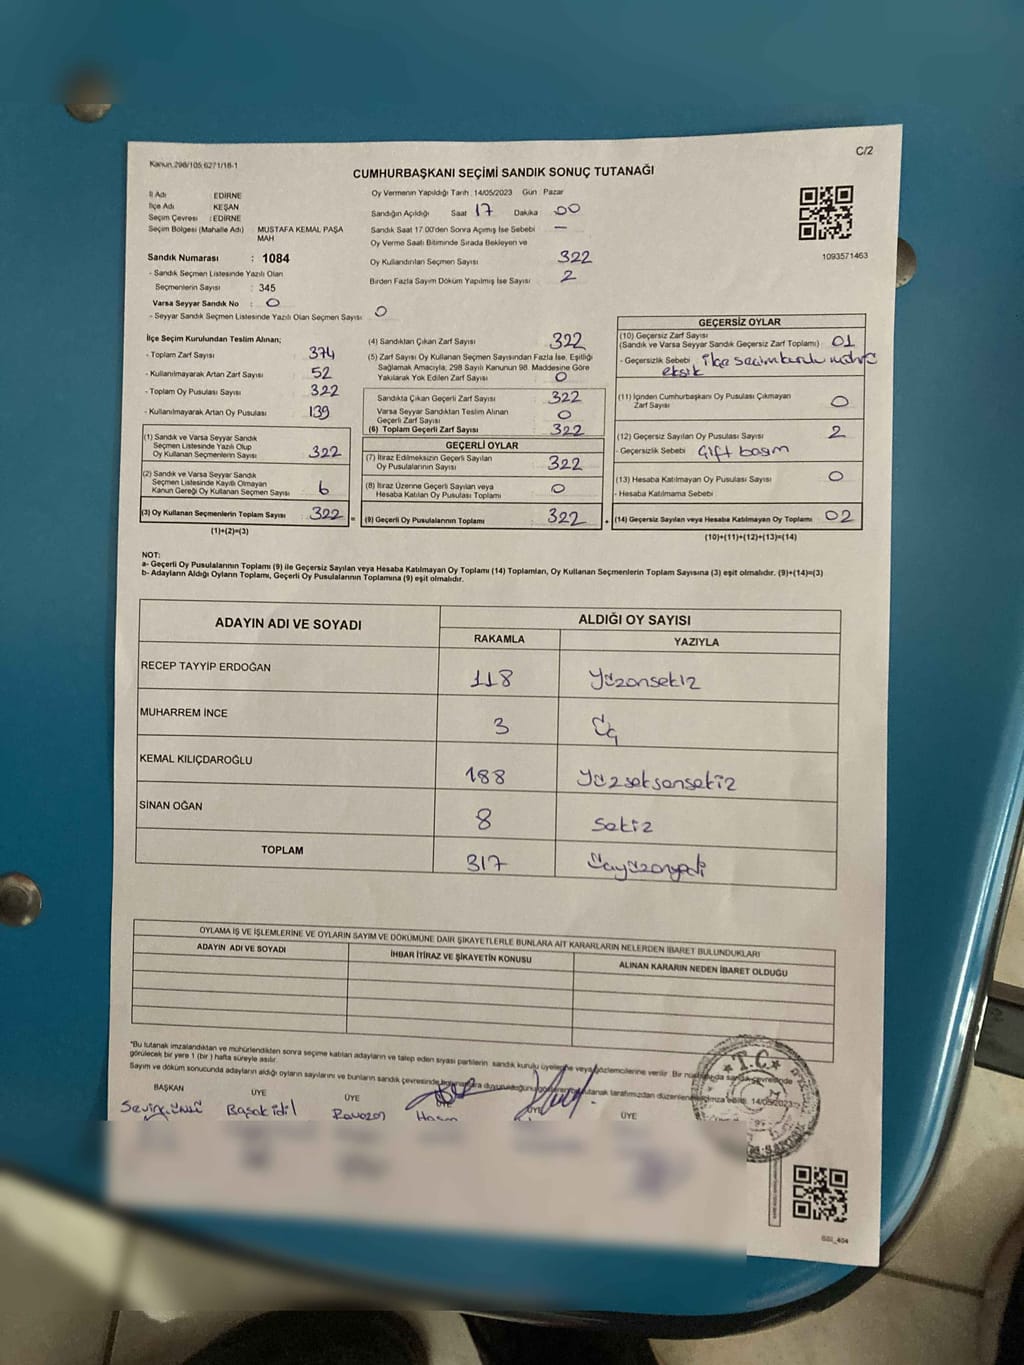 Kanun.298/105,6271/18-1
C/2
CUMHURBAŞKANI SEÇİMİ SANDIK SONUÇ TUTANAĞI
İl Adı EDİRNE
İlçe Adı KEŞAN
Seçim Çevresi : EDİRNE
Seçim Bölgesi (Mahalle Adı) MUSTAFA KEMAL PAŞA MAH
Sandık Numarası : 1084
- Sandık Seçmen Listesinde Yazılı Olan
Seçmenlerin Sayısı : 345
Varsa Seyyar Sandık No : 0
- Seyyar Sandık Seçmen Listesinde Yazılı Olan Seçmen Sayısı 0
Oy Vermenin Yapıldığı Tarih :14/05/2023 Gün : Pazar
Sandığın Açıldığı Saat 17 Dakika : 00
Sandık Saat 17.00'den Sonra Açımış İse Sebebi : —
Oy Verme Saati Bitiminde Sırada Bekleyen ve
Oy Kullandırılan Seçmen Sayısı : 322
Birden Fazla Sayım Döküm Yapılmış İse Sayısı : 2
1093571463
İlçe Seçim Kurulundan Teslim Alınan;
- Toplam Zarf Sayısı : 374
- Kullanılmayarak Artan Zarf Sayısı : 52
- Toplam Oy Pusulası Sayısı : 322
- Kullanılmayarak Artan Oy Pusulası : 139
(1) Sandık ve Varsa Seyyar Sandık
Seçmen Listesinde Yazılı Olup
Oy Kullanan Seçmenlerin Sayısı : 322
(2) Sandık ve Varsa Seyyar Sandık
Seçmen Listesinde Kayıtlı Olmayan
Kanun Gereği Oy Kullanan Seçmen Sayısı : 6
(3) Oy Kullanan Seçmenlerin Toplam Sayısı : 322
(1)+(2)=(3)
(4) Sandıktan Çıkan Zarf Sayısı : 322
(5) Zarf Sayısı Oy Kullanan Seçmen Sayısından Fazla İse, Eşitliği
Sağlamak Amacıyla, 298 Sayılı Kanunun 98. Maddesine Göre
Yakılarak Yok Edilen Zarf Sayısı : 0
Sandıkta Çıkan Geçerli Zarf Sayısı : 322
Varsa Seyyar Sandıktan Teslim Alınan
Geçerli Zarf Sayısı : 0
(6) Toplam Geçerli Zarf Sayısı : 322
GEÇERLİ OYLAR
(7) İtiraz Edilmeksizin Geçerli Sayılan
Oy Pusulalarının Sayısı : 322
(8) İtiraz Üzerine Geçerli Sayılan veya
Hesaba Katılan Oy Pusulası Toplamı : 0
= (9) Geçerli Oy Pusulalarının Toplamı : 322
GEÇERSİZ OYLAR
(10) Geçersiz Zarf Sayısı
(Sandık ve Varsa Seyyar Sandık Geçersiz Zarf Toplamı) : 01
- Geçersizlik Sebebi : ilçe seçim kurulu
eksik
(11) İçinden Cumhurbaşkanı Oy Pusulası Çıkmayan
Zarf Sayısı : 0
(12) Geçersiz Sayılan Oy Pusulası Sayısı : 2
- Geçersizlik Sebebi : Çift basım
(13) Hesaba Katılmayan Oy Pusulası Sayısı : 0
- Hesaba Katılmama Sebebi
+ (14) Geçersiz Sayılan veya Hesaba Katılmayan Oy Toplamı : 02
(10)+(11)+(12)+(13)=(14)
NOT:
a- Geçerli Oy Pusulalarının Toplamı (9) ile Geçersiz Sayılan veya Hesaba Katılmayan Oy Toplamı (14) Toplamları, Oy Kullanan Seçmenlerin Toplam Sayısına (3) eşit olmalıdır. (9)+(14)=(3)
b- Adayların Aldığı Oyların Toplamı, Geçerli Oy Pusulalarının Toplamına (9) eşit olmalıdır.
ADAYIN ADI VE SOYADI
ALDIĞI OY SAYISI
RAKAMLA YAZIYLA
RECEP TAYYİP ERDOĞAN 118 Yüzonsekiz
MUHARREM İNCE 3 Üç
KEMAL KILIÇDAROĞLU 188 Yüzseksensekiz
SİNAN OĞAN 8 Sekiz
TOPLAM 317 Üçyüzonyedi
OYLAMA İŞ VE İŞLEMLERİNE VE OYLARIN SAYIM VE DÖKÜMÜNE DAİR ŞİKAYETLERLE BUNLARA AİT KARARLARIN NELERDEN İBARET BULUNDUKLARI
ADAYIN ADI VE SOYADI İHBAR İTİRAZ VE ŞİKAYETİN KONUSU ALINAN KARARIN NEDEN İBARET OLDUĞU
*Bu tutanak imzalandıktan ve mühürlendikten sonra seçime katılan adayların ve talep eden siyasi partilerin sandık kurulu üyelerine veya gözlemcilerine verilir. Bir nüshasıda sandık çevresinde
görülecek bir yere 1 (bir ) hafta süreyle asılır.
Sayım ve döküm sonucunda adayların aldığı oyların sayılarını ve bunların sandık çevresinde tutanak tarafımızdan 14/05/2023
BAŞKAN ÜYE ÜYE ÜYE ÜYE ÜYE
Başak idil Ramazan Hasan
T.C.